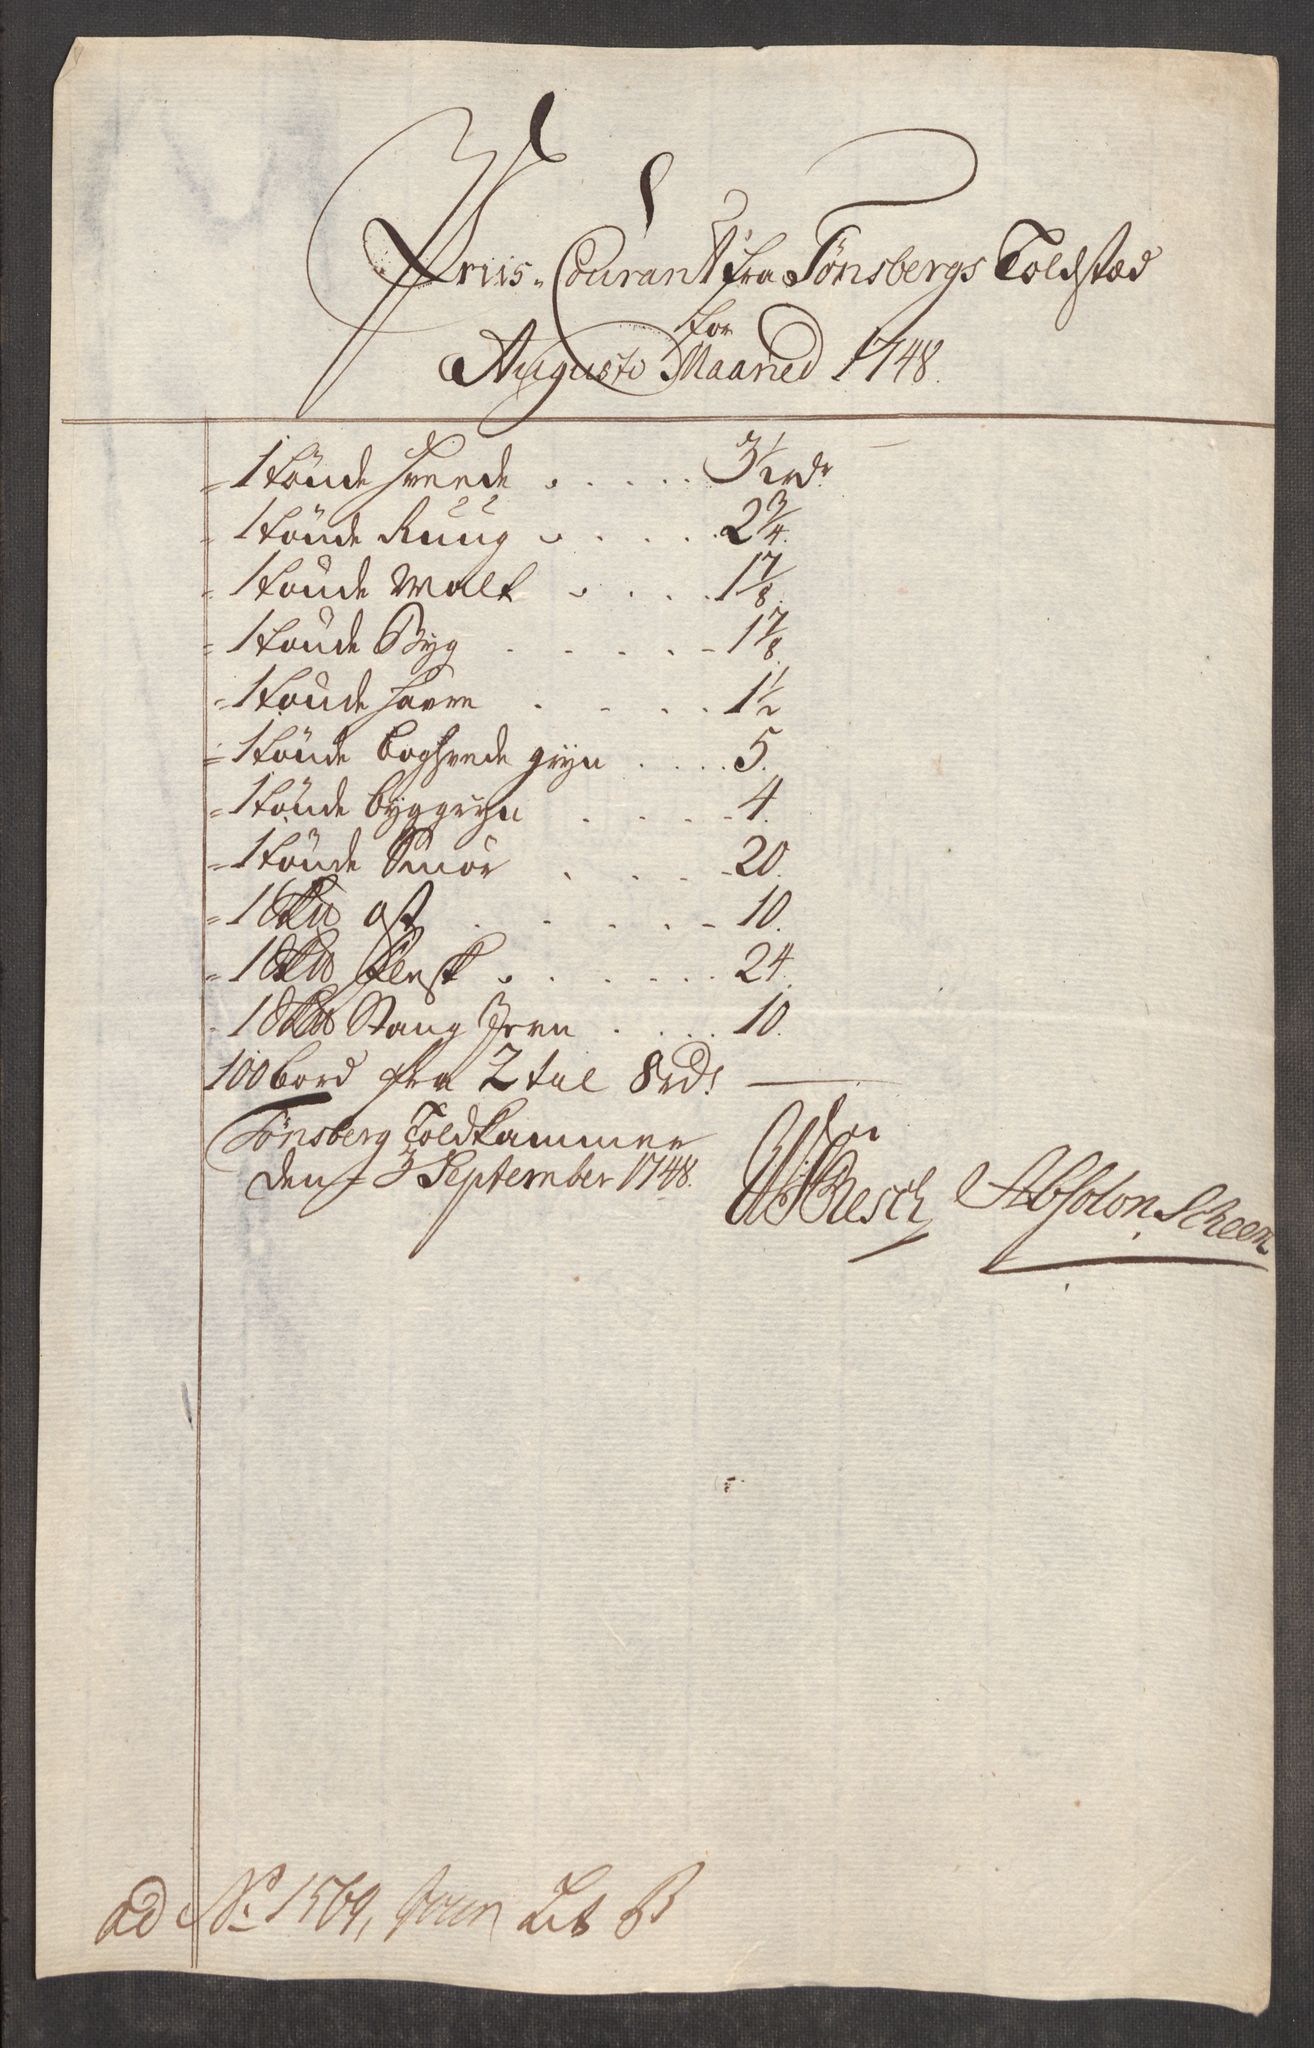 Priis-Courant fra Tønsbergs Toldstæd
for
Augusti Maaned 1748.
1 tönde Hvede . . . . . 3½ rdr
1 tönde Rüüg . . . . . 2¾.
1 tönde Malt . . . . 1⅞.
1 tönde Byg . . . . . 1⅞.
1 tönde Havre . . . . 1½
1 tönde boghvede gryn . . . . 5.
1 tönde byggryn . . . . 4.
1 tönde Smör . . . . 20.
1 Sk℔ ost . . . . . 10.
1 Sk℔ flesk . . . . . 24.
1 Sk℔ Stang Jern . . . . 10.
100 bord fra 2 tal 8 rdr
Tönsberg Toldkammer
den 3 September 1748.
Resch Absolon Scheen
ad No 1569, Journ Lit B